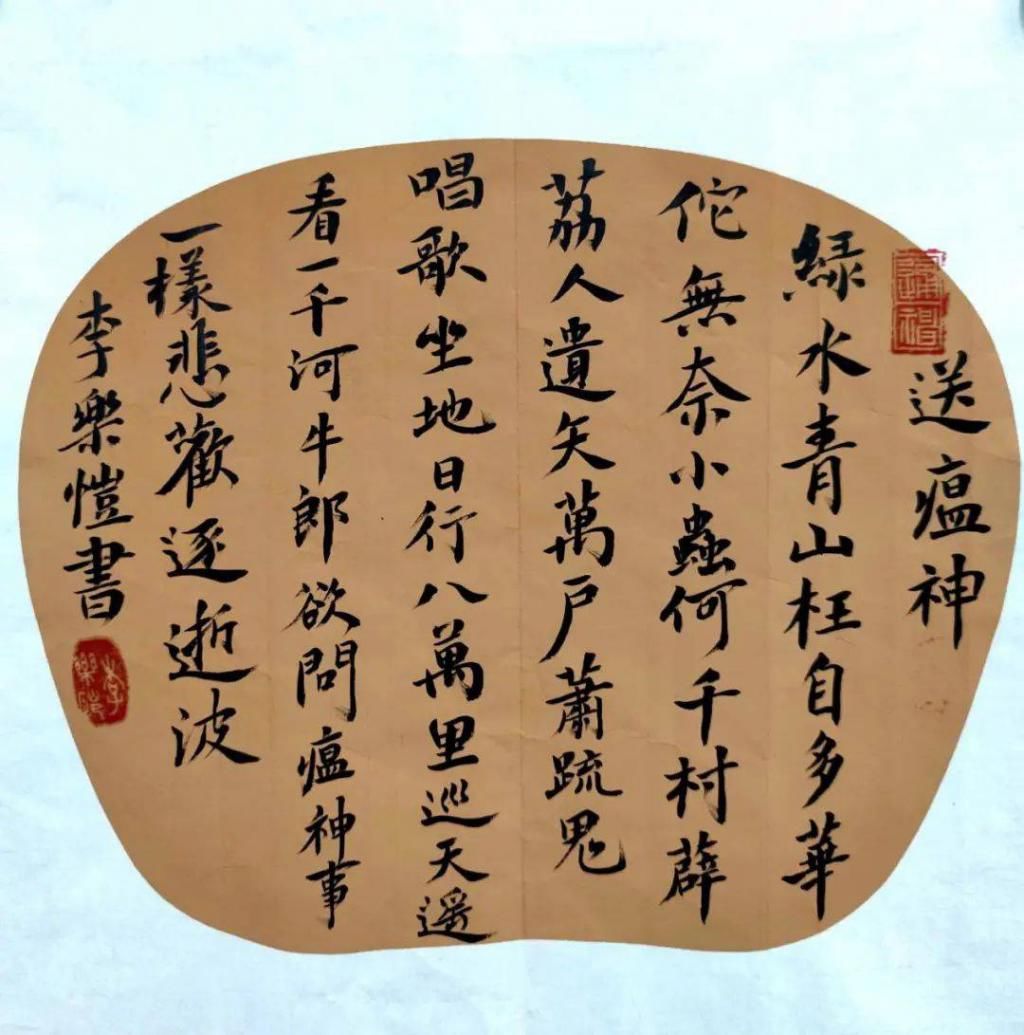 送瘟神
綠水青山枉自多華
佗無奈小蟲何千村薜
荔人遺矢萬戶蕭疏鬼
唱歌坐地日行八萬里巡天遥
看一千河牛郎欲問瘟神事
一樣悲歡逐逝波
李樂愷書
李樂愷